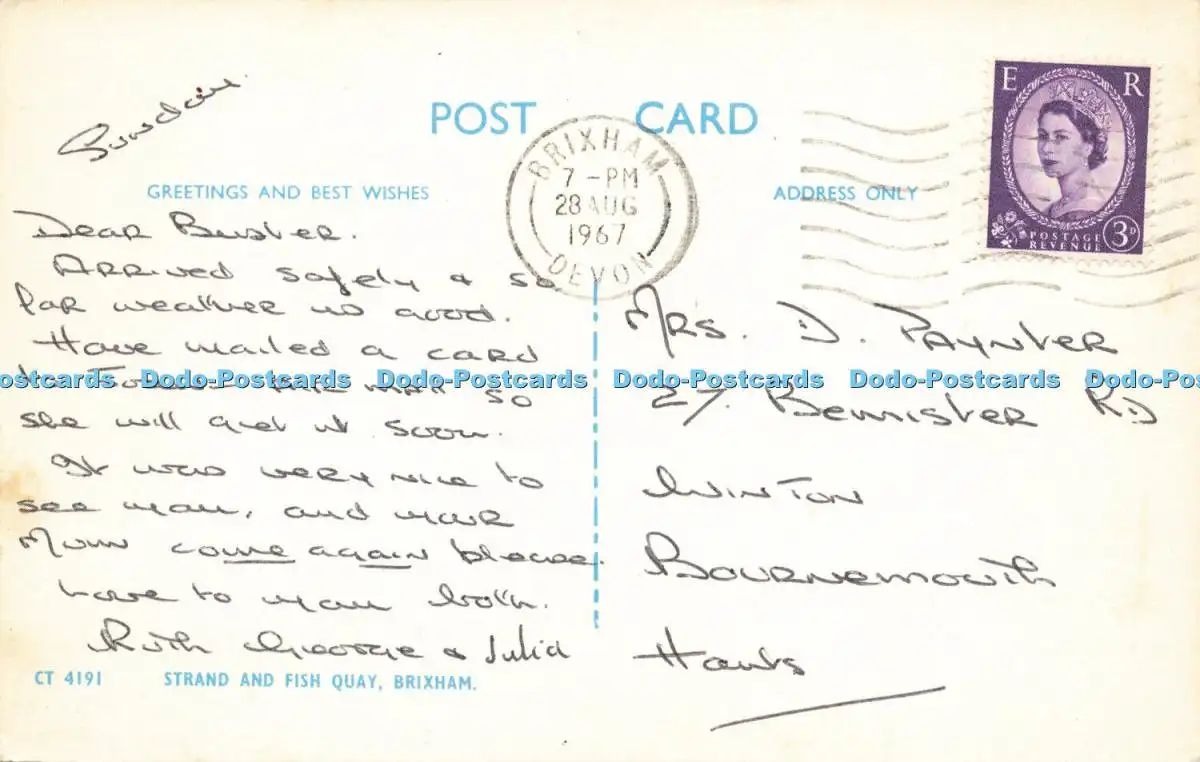 Sunday.
POST CARD
BRIXHAM
7 -PM
28 AUG
1967
DEVON
E R
POSTAGE
REVENUE
3D
GREETINGS AND BEST WISHES
ADDRESS ONLY
Dear Buster.
Arrived safely & so
far weather is good.
Have mailed a card
to so
she will get it soon.
It was very nice to
see you, and your
Mum come again please.
Love to you both.
Ruth George & Julia
Mrs. D. Paynter
27. Bemister RD
Winton
Bournemouth
Hants
Dodo-Postcards Dodo-Postcards Dodo-Postcards Dodo-Postcards Dodo-Postcards Dodo-Pos
CT 4191 STRAND AND FISH QUAY, BRIXHAM.